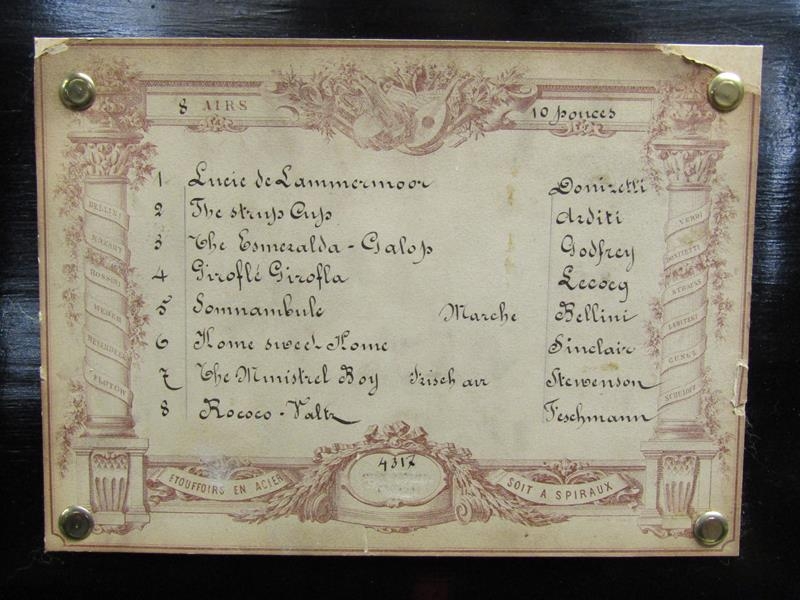 8 AIRS 10 pouces
1 Lucie de Lammermoor Donizetti
2 The strup Cup Arditi
3 The Esmeralda - Galop Godfrey
4 Giroflé Girofla Lecocq
5 Somnambule Marche Bellini
6 Home sweet Home Sinclair
7 The Minstrel Boy Irisch air Stewenson
8 Rococo - Valtz Feschmann
BELLINI
MOZART
ROSSINI
WEBER
MEYERBEER
FLOTOW
VERDI
DONIZETTI
STRAUSS
LABITZKI
GUNGL
SCHULOFF
4317
ETOUFFOIRS EN ACIER
SOIT A SPIRAUX